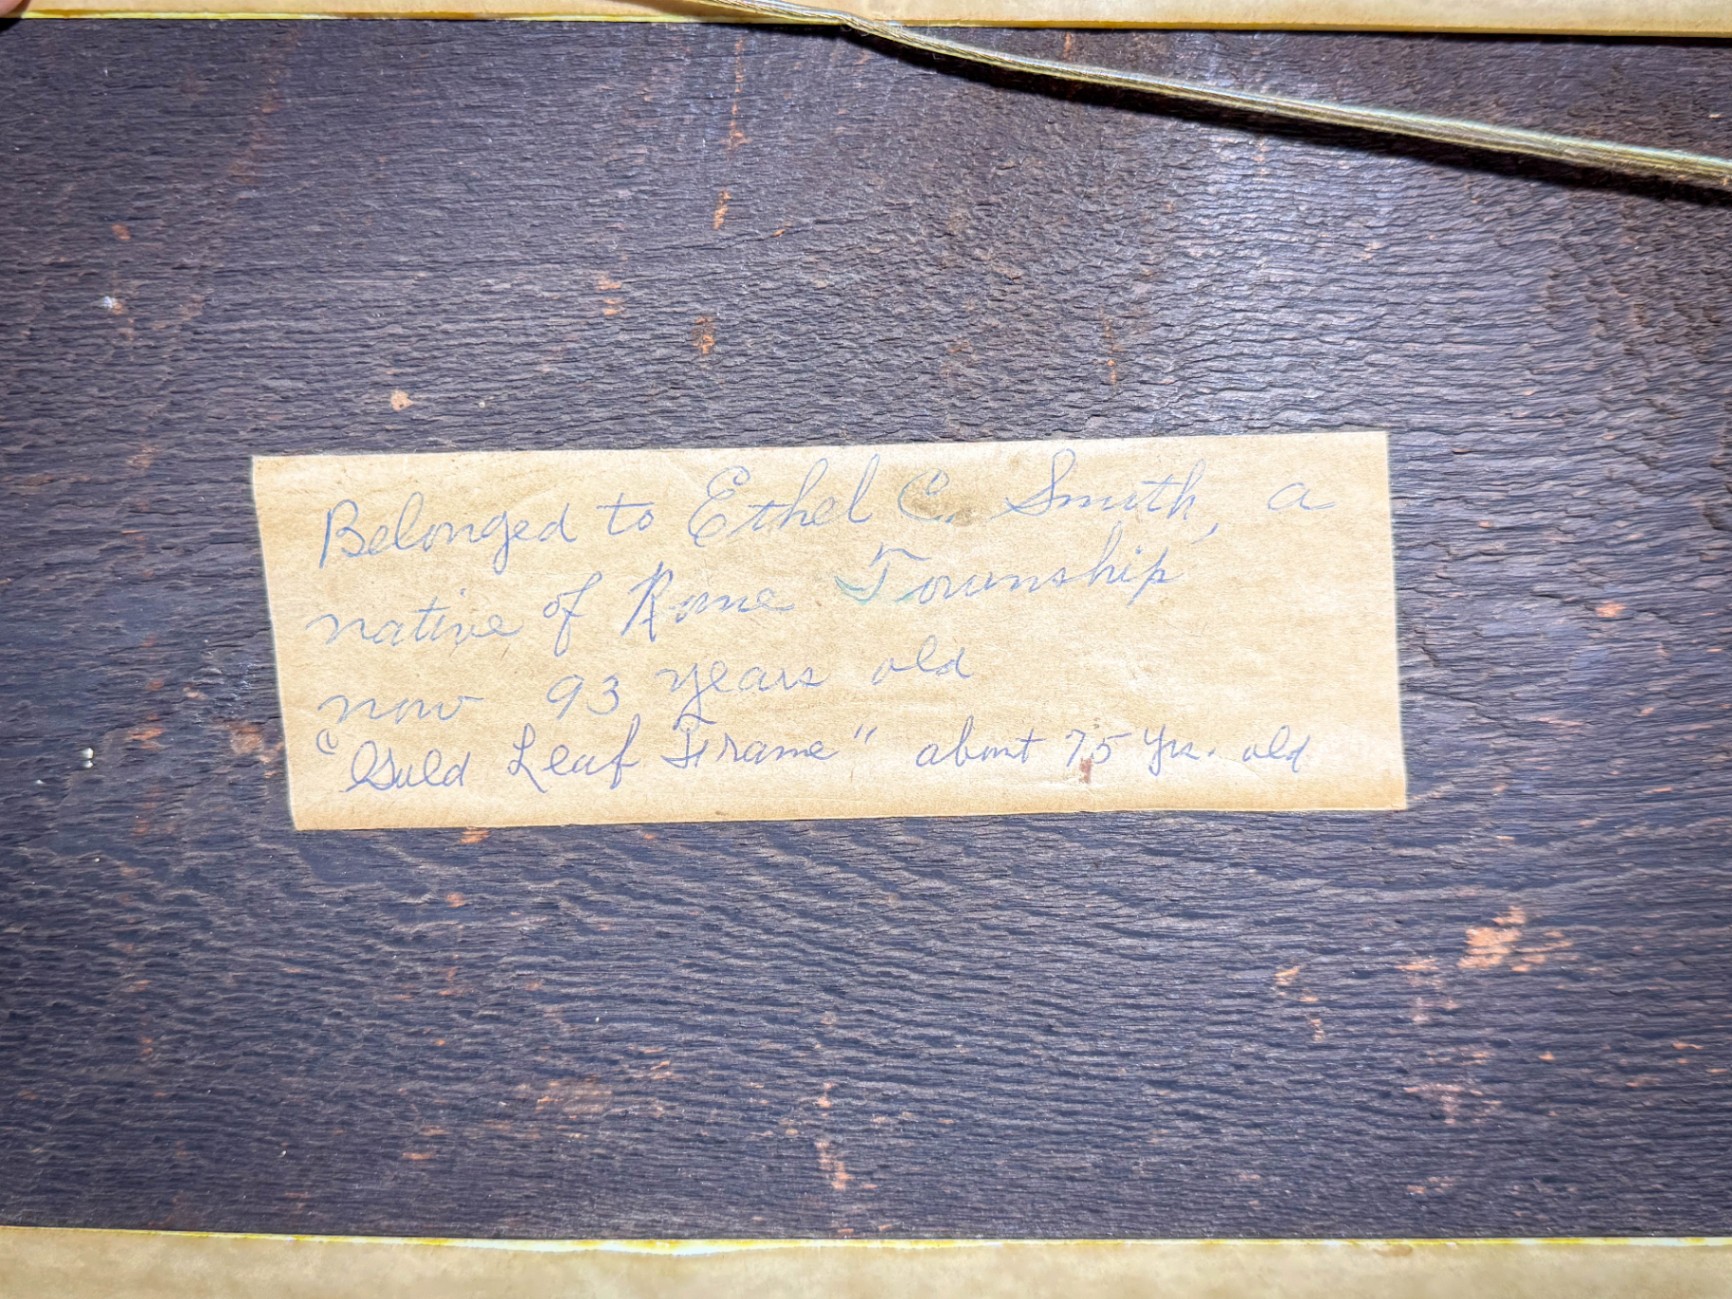 Belonged to Ethel C. Smith, a
native of Rome Township
now 93 years old
"Gold Leaf Frame" about 75 yrs. old